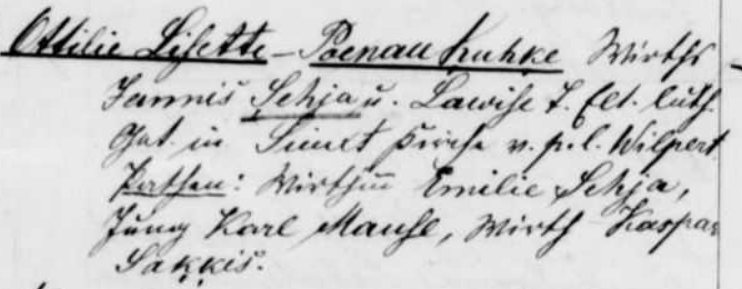 Ottilie Lisette – Poenau Kuhke Wirths
Jannis Sehja u. Lawise T. Elt. luth.
Get. in Siuxt Kirche v. p. l. Wilpert.
Pathen: Wirthin Emilie Sehja,
Jung Karl Mause, Wirth Kaspar
Sakkis.